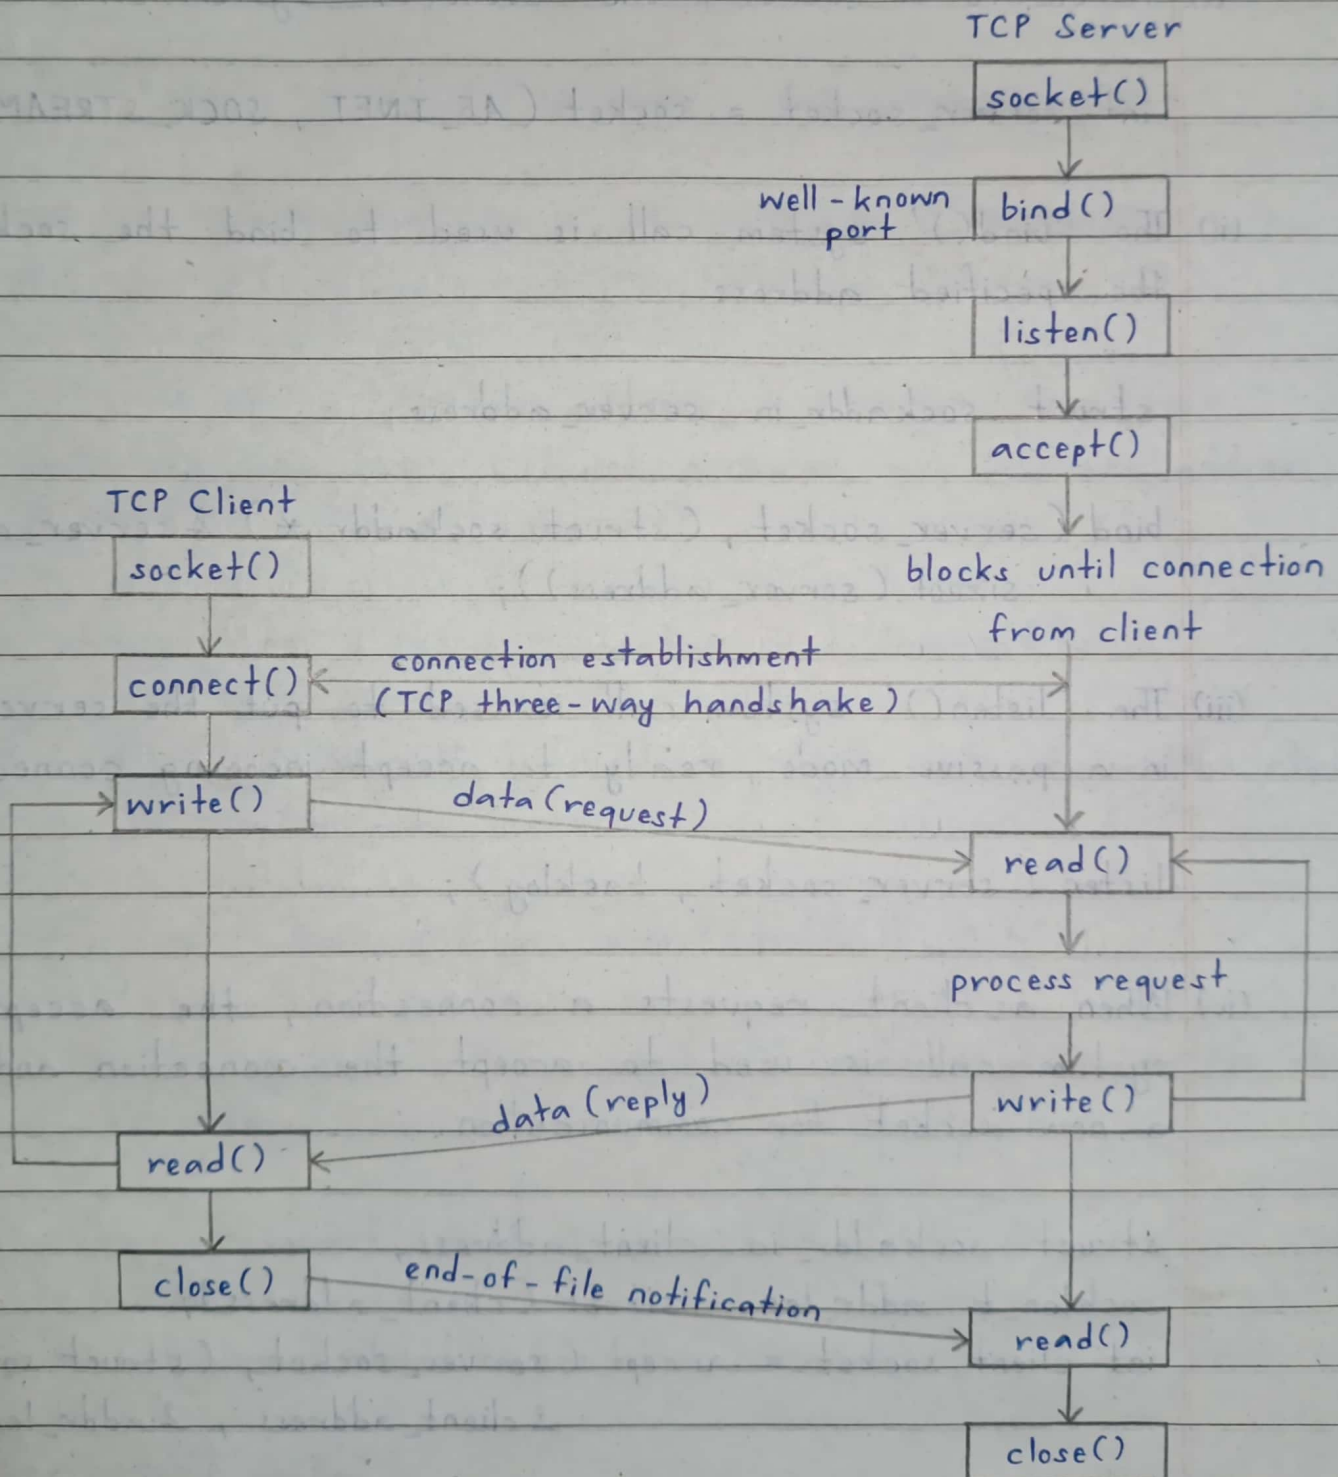 TCP Server
socket()
well-known
port
bind()
listen()
accept()
TCP Client
socket()
blocks until connection
from client
connection establishment
connect()
(TCP three-way handshake)
write()
data(request)
read()
process request
write()
data(reply)
read()
close()
end-of-file notification
read()
close()